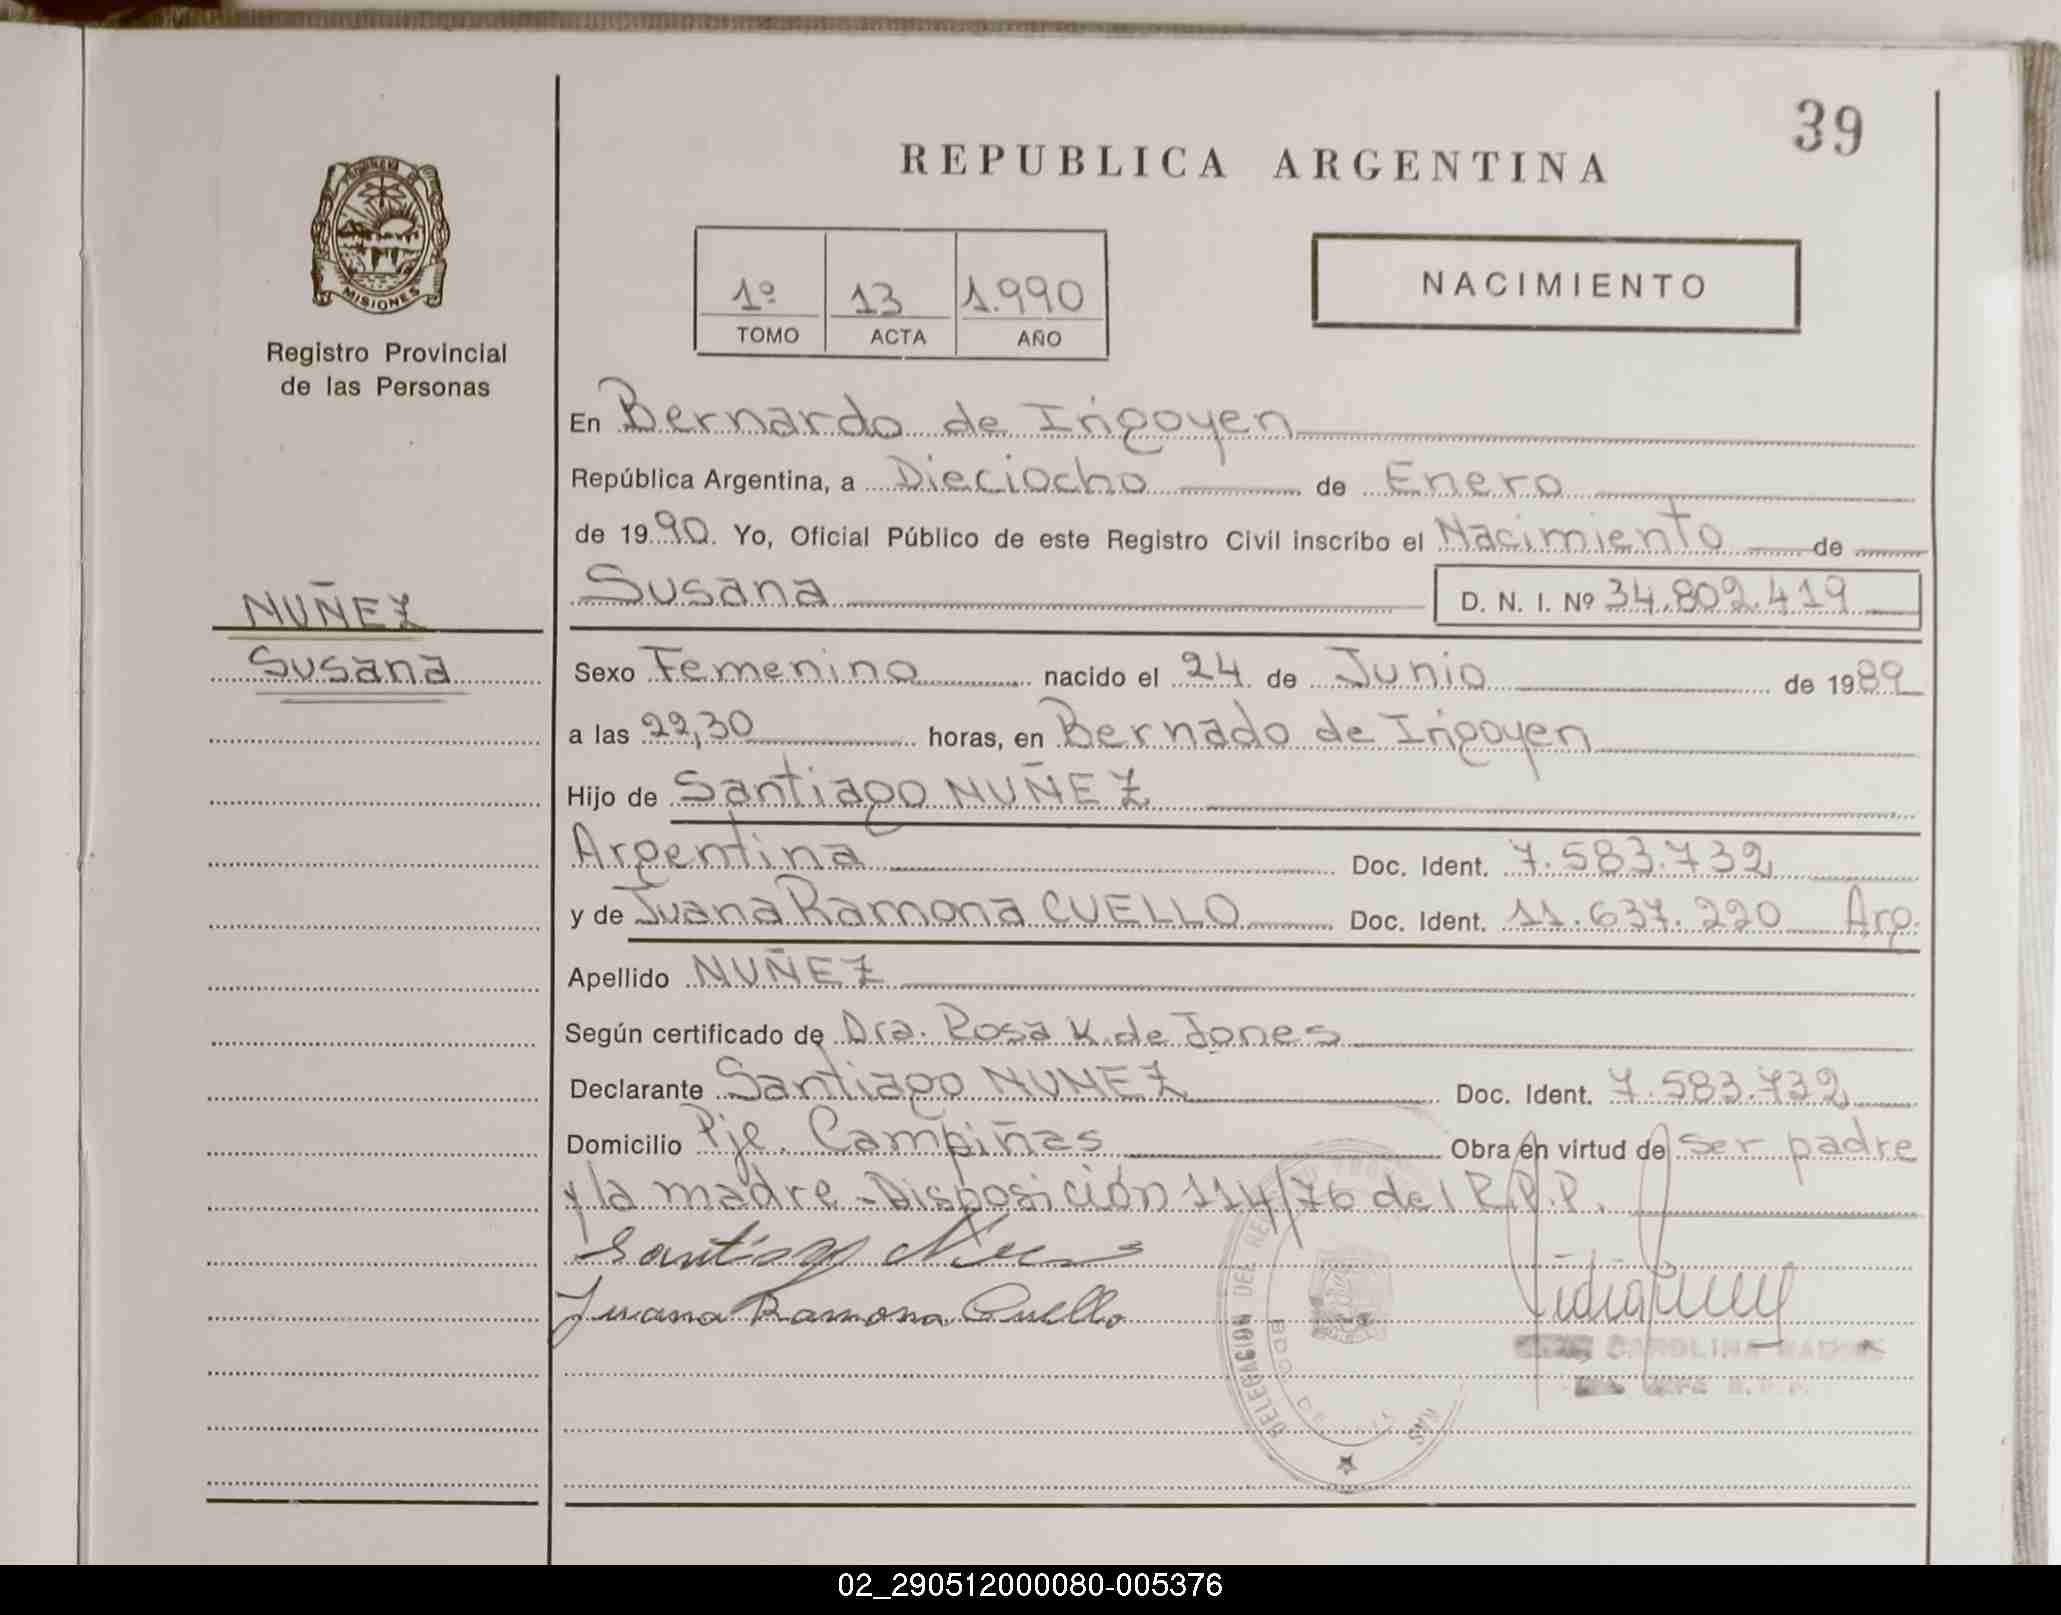 39
REPUBLICA ARGENTINA
MISIONES
Registro Provincial
de las Personas
1º 13 1.990
TOMO ACTA AÑO
NACIMIENTO
En Bernardo de Irigoyen
República Argentina, a Dieciocho de Enero
de 1990. Yo, Oficial Público de este Registro Civil inscribo el Nacimiento de
Susana D. N. I. Nº 34.802.419
NUÑEZ
Susana
Sexo Femenino nacido el 24 de Junio de 1989
a las 22,30 horas, en Bernado de Irigoyen
Hijo de Santiago NUÑEZ
Argentina Doc. Ident. 7.583.732
y de Juana Ramona CUELLO Doc. Ident. 11.637.220 Arg.
Apellido NUÑEZ
Según certificado de Dra. Rosa K. de Jones
Declarante Santiago NUÑEZ Doc. Ident. 7.583.732
Domicilio Pje. Campiñas Obra en virtud de ser padre
y la madre - Disposición 114/76 del R.P.P.
Santiago
Juana Ramona Cuello
DELEGACION DEL
CAROLINA
02_290512000080-005376